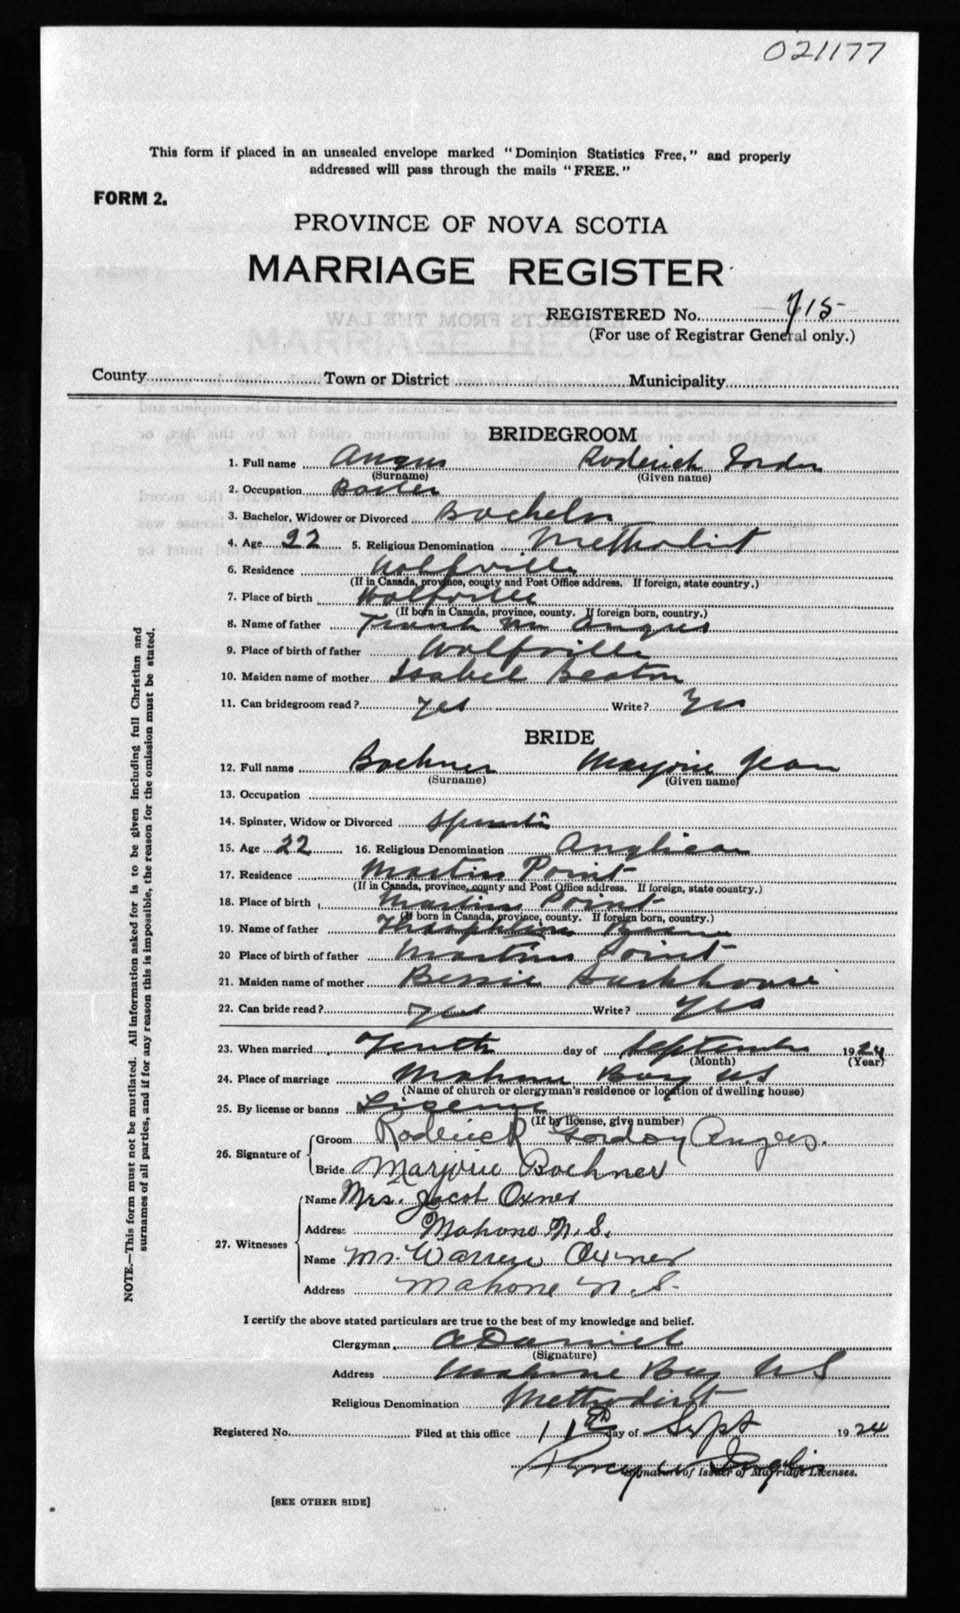 021177
This form if placed in an unsealed envelope marked "Dominion Statistics Free," and properly
addressed will pass through the mails "FREE."
FORM 2.
PROVINCE OF NOVA SCOTIA
MARRIAGE REGISTER
REGISTERED No. 715
(For use of Registrar General only.)
County Town or District Municipality
BRIDEGROOM
1. Full name Angus Roderick Gordon
(Surname) (Given name)
2. Occupation
3. Bachelor, Widower or Divorced Bachelor
4. Age 22 5. Religious Denomination Methodist
6. Residence Wolfville
(If in Canada, province, county and Post Office address. If foreign, state country.)
7. Place of birth Wolfville
(If born in Canada, province, county. If foreign born, country.)
8. Name of father Frank Wm Angus
9. Place of birth of father Wolfville
10. Maiden name of mother Isabel Beaton
11. Can bridegroom read? Yes Write? Yes
BRIDE
12. Full name Boehner Marjorie Jean
(Surname) (Given name)
13. Occupation
14. Spinster, Widow or Divorced Spinster
15. Age 22 16. Religious Denomination Anglican
17. Residence Martins Point
(If in Canada, province, county and Post Office address. If foreign, state country.)
18. Place of birth Martins Point
(If born in Canada, province, county. If foreign born, country.)
19. Name of father
20 Place of birth of father Martins Point
21. Maiden name of mother Bessie
22. Can bride read? Yes Write? Yes
23. When married Tenth day of September 1924
(Month) (Year)
24. Place of marriage Mahone Bay NS
(Name of church or clergyman's residence or location of dwelling house)
25. By license or banns License
(If by license, give number)
26. Signature of
Groom Roderick Gordon Angus.
Bride Marjorie Boehner
27. Witnesses
Name Mrs. Jacob Oxner
Address Mahone N.S.
Name Mr. Warren Oxner
Address Mahone N.S.
I certify the above stated particulars are true to the best of my knowledge and belief.
Clergyman A Daniel
(Signature)
Address Mahone Bay NS
Religious Denomination Methodist
Registered No. Filed at this office 11th day of Sept 1924
Signature of Issuer of Marriage Licenses.
[SEE OTHER SIDE]
NOTE.—This form must not be mutilated. All information asked for is to be given including full Christian and
surnames of all parties, and if for any reason this is impossible, the reason for the omission must be stated.